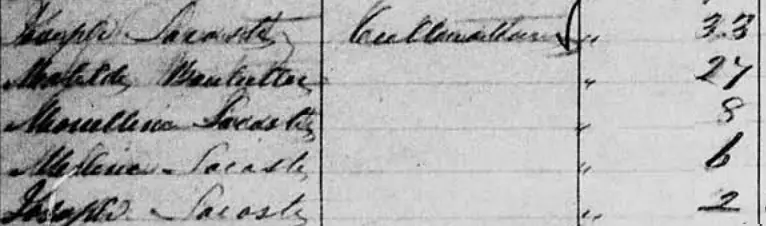 Joseph Lacoste Cultivateur " 33
Mathilde " 27
Marcelline Lacoste " 8
Lacoste " 6
Joseph Lacoste " 2